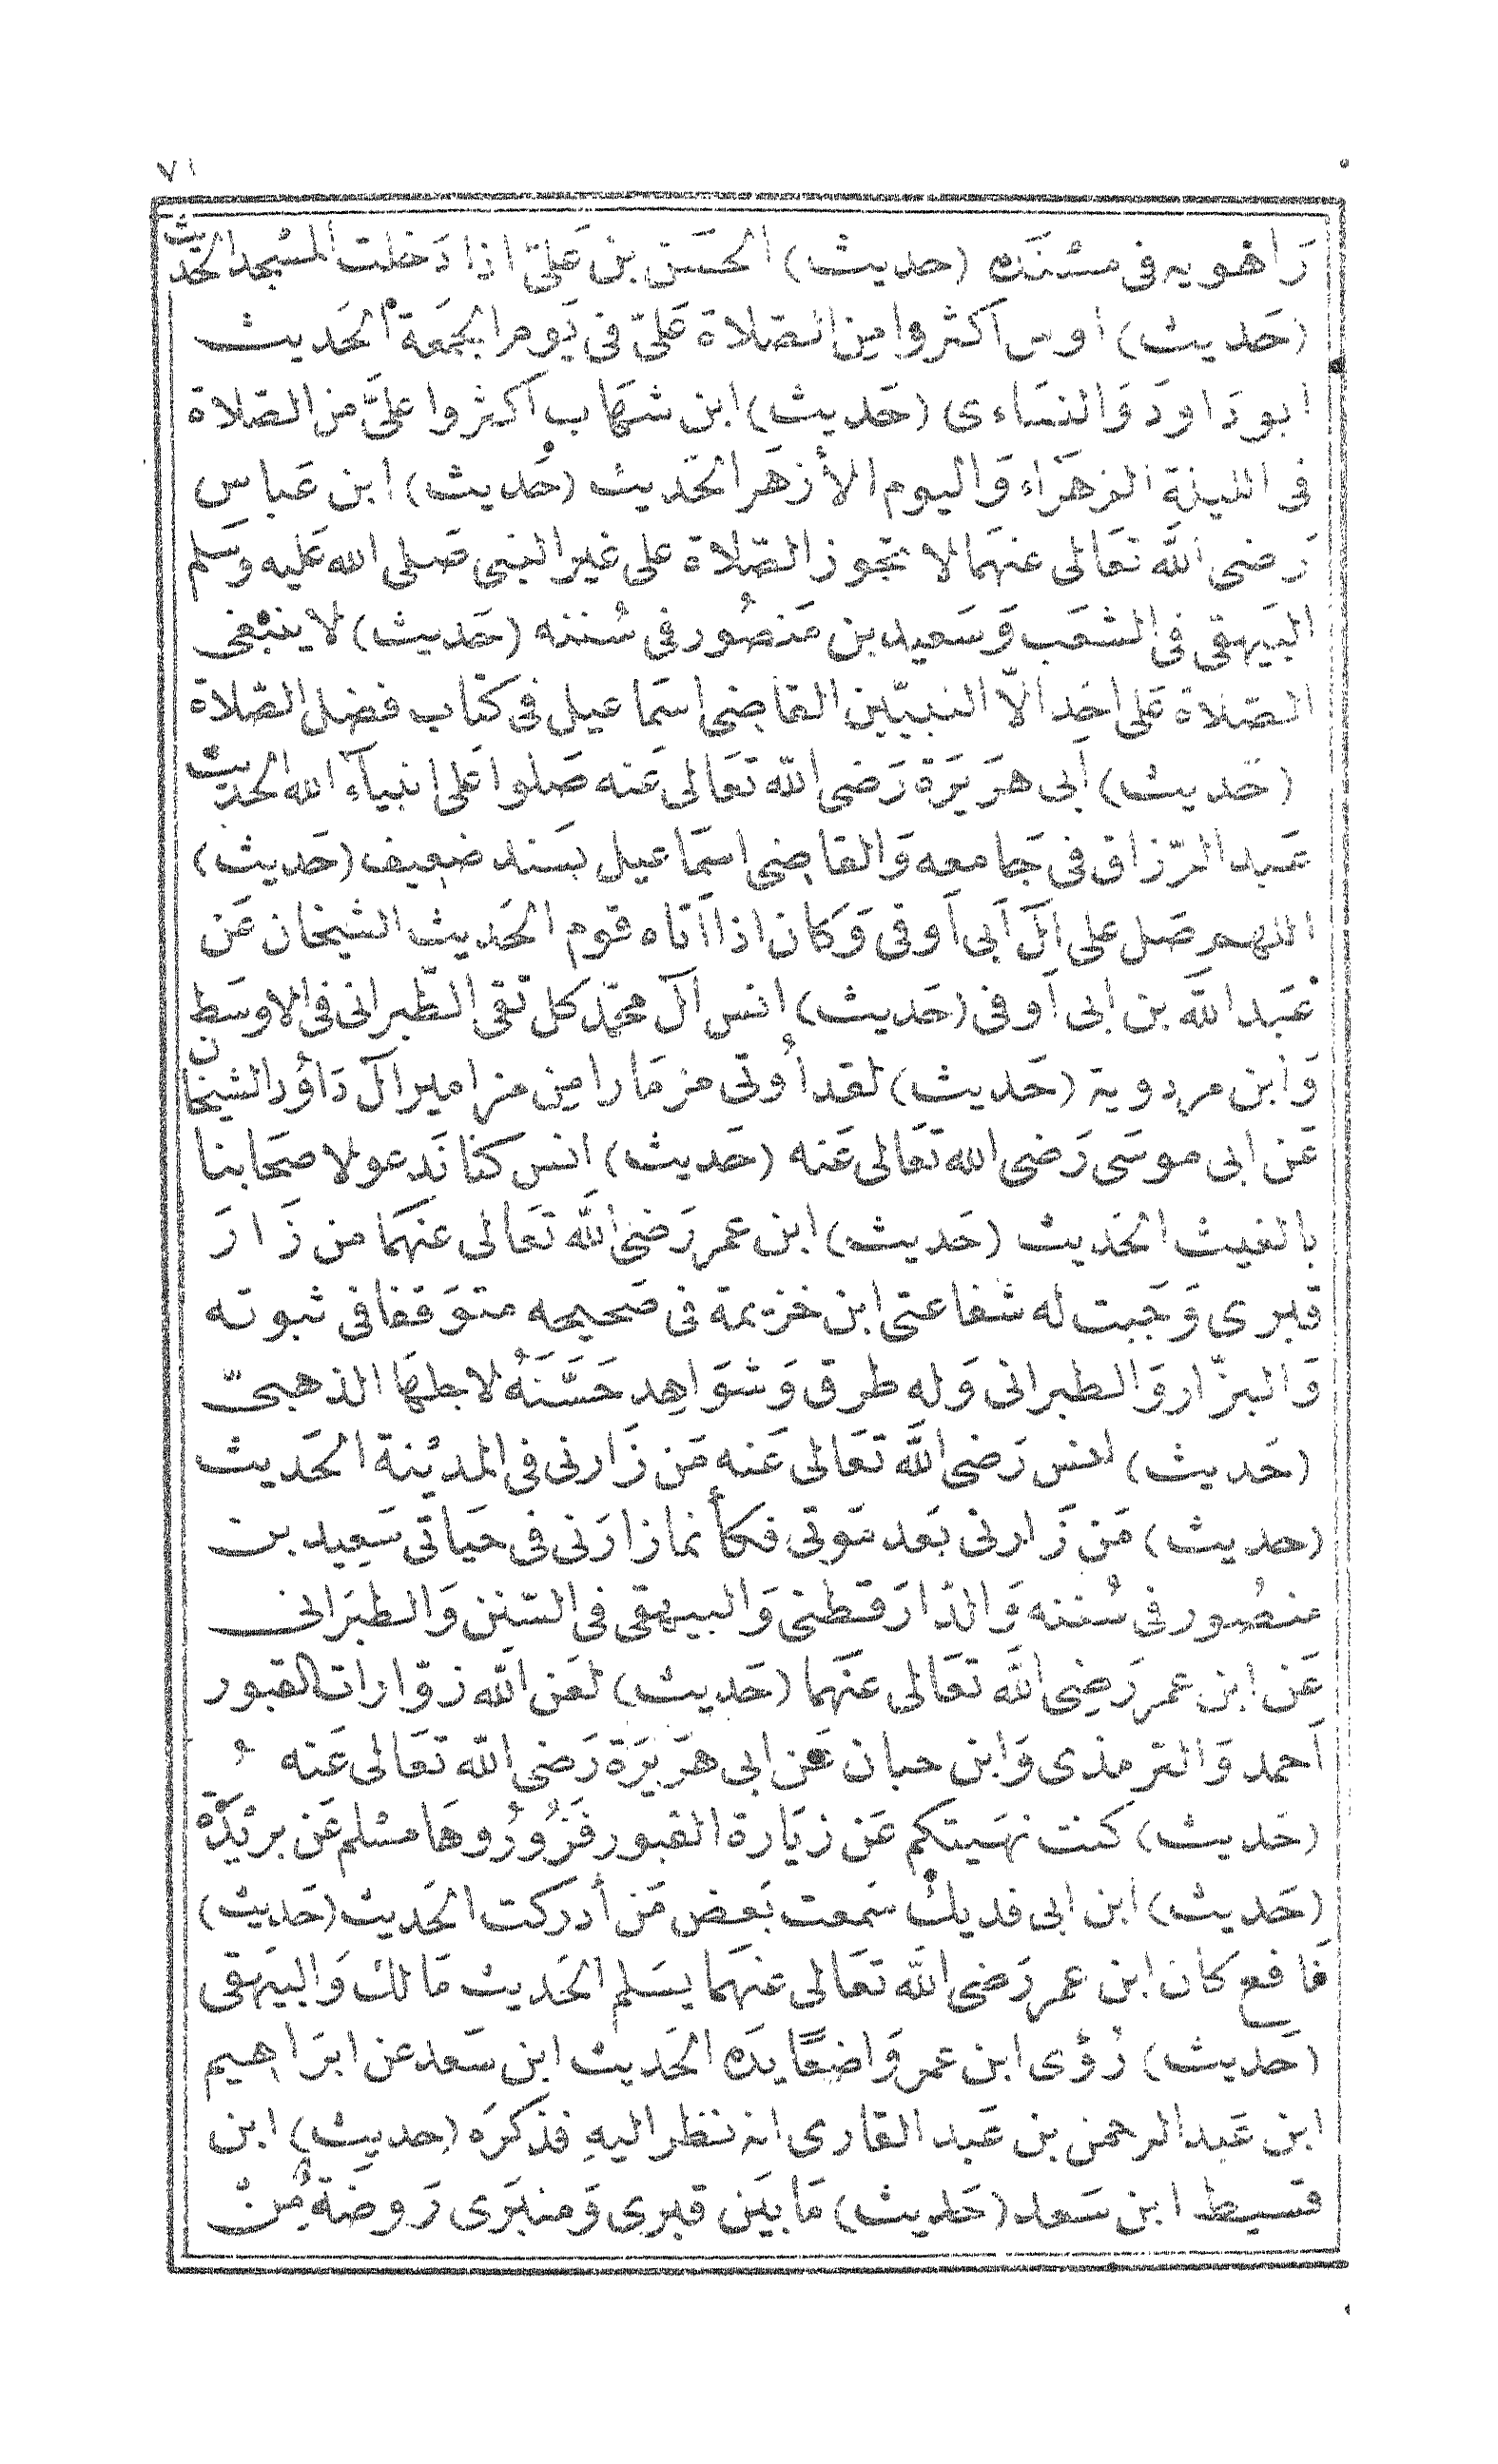 ٧١
رَاهويه فى مسْنَده (حديث) الحسَن بن عَلىّ اذا دَخلت المسْجد الحَديث
(حَديث) اوس اكثروا من الصَّلاة عَلىّ فى يَوم الجمَعَة الحَديث
ابو دَاودَ وَالنسَاءى (حَديث) ابن شهَاب اكثروا علىَّ من الصَّلاة
فى الليلة الزهرَاء وَاليوم الأزهَر الحَديث (حَديث) ابن عَباس
رَضى الله تعَالى عنهمَا لا تجوز الصَّلاة على غير النبى صَلى الله عَليه وَسَلم
البَيهقى فى الشعَب وَسَعيد بن مَنصُور فى سُننه (حَديث) لا ينبْغى
الصَّلاة عَلى احَد الّا النبيّين القاضى اسمَاعيل فى كتاب فضل الصَّلاة
(حَديث) أبى هرَيرَة رَضى الله تعَالى عَنه صَلوا عَلى انبيآء الله الحديث
عَبد الرّزاق فى جَامعه وَالقاضى اسمَاعيل بسَند ضعيف (حَديث)
اللهم صَل على آل أبى أوفى وَكان اذا أتاه قوم الحَديث الشيخان عَن
عَبد الله بن ابى أوفى (حَديث) انس آل محمّد كل تقى الطّبرانى فى الاوسَط
وَابن مردوية (حَديث) لقد أُوتى مزمَارا من مزامير آل دَاوُد الشيخان
عَن ابى موسَى رَضى الله تعَالى عَنه (حَديث) انس كنا نَدعو لاصحَابنا
بالغيث الحَديث (حَديث) ابن عمر رَضى الله تعَالى عنهمَا من زَارَ
قبرى وَجَبت له شفاعتى ابن خزيمة فى صَحيحه متوَقفا فى ثبوته
وَالبزّار وَالطبرانى وَله طرق وَشوَاهِد حَسَّنَهُ لاجلهَا الذهبىّ
(حَديث) انس رَضى الله تعَالى عَنه مَن زَارنى فى المديْنة الحَديث
(حديث) مَن زَارنى بَعد مَوتى فكأنما زارَنى فى حيَاتى سَعِيد بن
منصُور فى سُننه وَالدّارَقطنى وَالبيهقى فى السّنن وَالطبَرانى
عَن ابن عمر رَضِى الله تعَالى عَنهَما (حَديث) لعَن الله زوّارات القبور
أحمد وَالترمذى وَابن حبان عَن ابى هرَيرَة رَضى الله تعَالى عَنه
(حَديث) كنت نهَيتكم عَن زيَارة القبور فَزُورُوهَا مسْلم عَن بريْدَة
(حَديث) ابن ابى فديك سَمعت بَعض مَن أدركت الحَديث (حَديث)
نَافع كان ابن عمر رَضى الله تعَالى عنهمَا يسَلم الحَديث مَالك وَالبيَهقى
(حَديث) رُؤى ابن عمر وَاضعًا يدَه الحَديث ابن سَعد عن ابرَاهيم
ابن عَبد الرحمن بن عَبد القارى انه نظر اليهِ فذكرَه (حديث) ابن
قسيط ابن سَعد (حَديث) مَا بيَن قبرى وَمنبَرى رَوضَة مِنْ